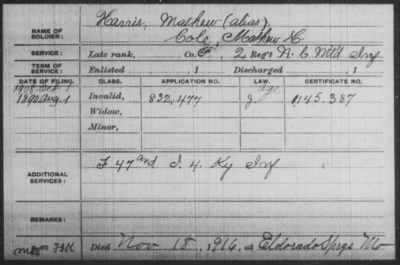 NAME OF SOLDIER: Harris, Mathew (alias)
Cole, Mathew H.
SERVICE: Late rank, Co. 2 Reg't N. C. Mtd Inf
TERM OF SERVICE: Enlisted , 1 Discharged , 1
DATE OF FILING. CLASS. APPLICATION NO. LAW. CERTIFICATE NO.
1890 Aug 1 Invalid, 832,477 1145.387
Widow,
Minor,
ADDITIONAL SERVICES: F 47 and I. 4. Ky Inf
REMARKS:
Died Nov 18, 1916, at Eldorado Spgs Mo